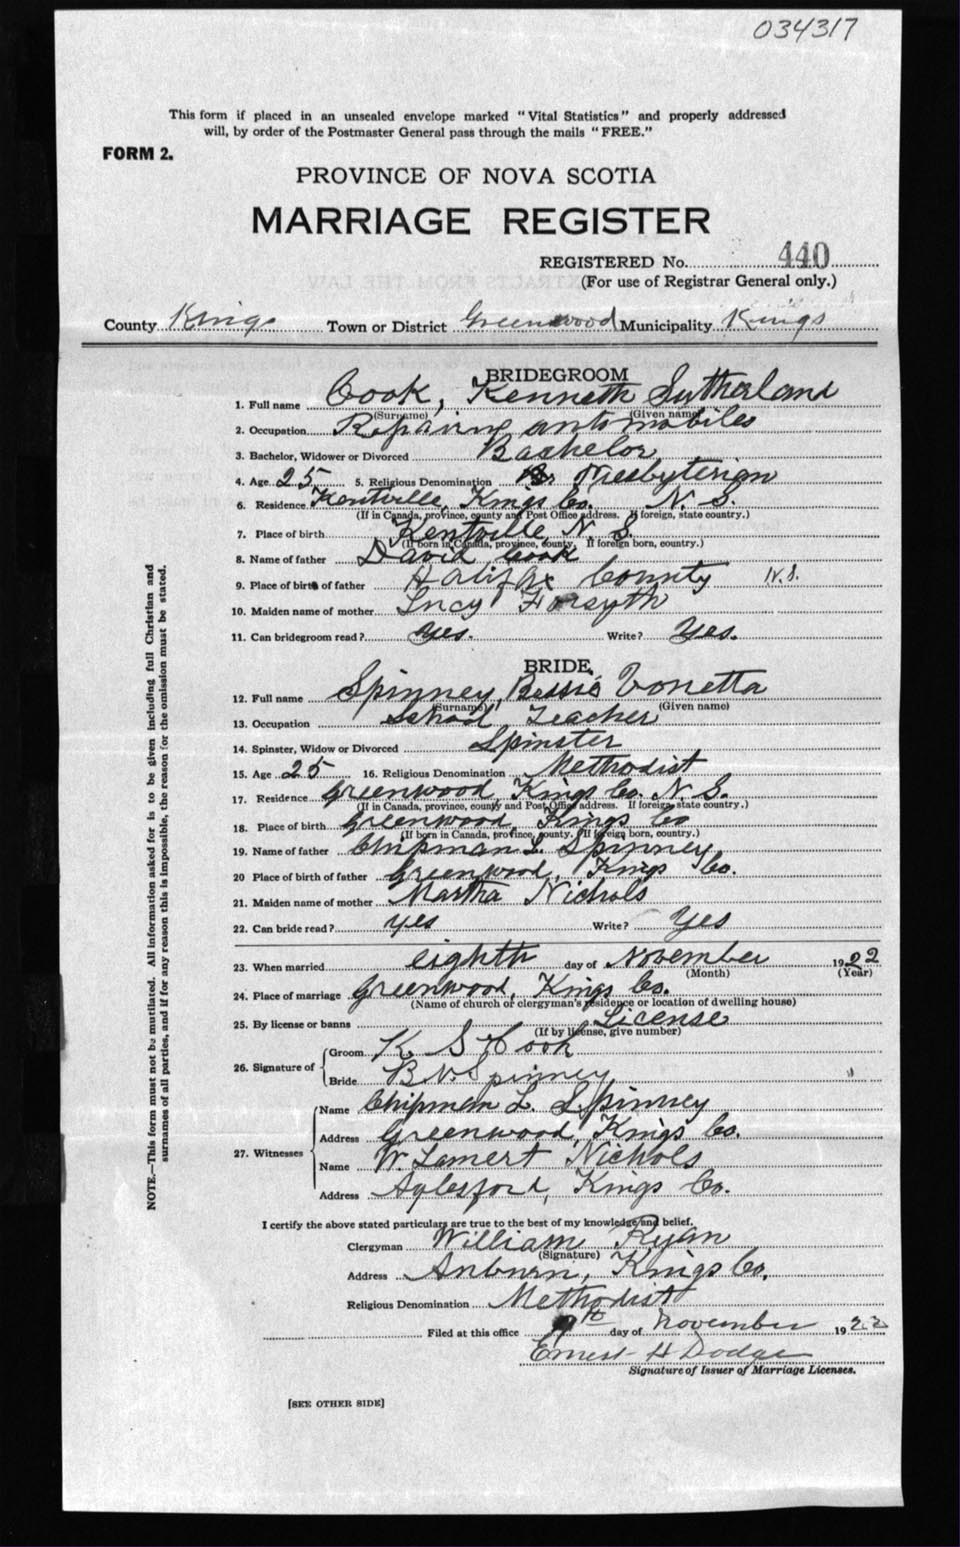 034317
This form if placed in an unsealed envelope marked "Vital Statistics" and properly addressed
will, by order of the Postmaster General pass through the mails "FREE."
FORM 2.
PROVINCE OF NOVA SCOTIA
MARRIAGE REGISTER
REGISTERED No. 440
(For use of Registrar General only.)
County Kings Town or District Greenwood Municipality Kings
BRIDEGROOM
1. Full name Cook, Kenneth Sutherland
(Surname) (Given name)
2. Occupation Repairing automobiles
3. Bachelor, Widower or Divorced Bachelor
4. Age 25 5. Religious Denomination Presbyterian
6. Residence Kentville, Kings Co. N. S.
(If in Canada, province, county and Post Office address. If foreign, state country.)
7. Place of birth Kentville, N. S.
(If born in Canada, province, county. If foreign born, country.)
8. Name of father David Cook
9. Place of birth of father Halifax County N.S.
10. Maiden name of mother Lucy Forsyth
11. Can bridegroom read? Yes. Write? Yes.
BRIDE
12. Full name Spinney, Bessie Vonetta
(Surname) (Given name)
13. Occupation School Teacher
14. Spinster, Widow or Divorced Spinster
15. Age 25 16. Religious Denomination Methodist
17. Residence Greenwood, Kings Co. N. S.
(If in Canada, province, county and Post Office address. If foreign, state country.)
18. Place of birth Greenwood, Kings Co
(If born in Canada, province, county. If foreign born, country.)
19. Name of father Chipman L. Spinney
20 Place of birth of father Greenwood, Kings Co.
21. Maiden name of mother Martha Nichols
22. Can bride read? yes Write? Yes
23. When married eighth day of November 1922
(Month) (Year)
24. Place of marriage Greenwood, Kings Co.
(Name of church or clergyman's residence or location of dwelling house)
25. By license or banns License
(If by license, give number)
26. Signature of
Groom K. S. Cook
Bride B.V. Spinney
27. Witnesses
Name Chipman L. Spinney
Address Greenwood, Kings Co.
Name W. Lamert Nichols
Address Aylesford, Kings Co.
I certify the above stated particulars are true to the best of my knowledge and belief.
Clergyman William Ryan
(Signature)
Address Auburn, Kings Co.
Religious Denomination Methodist
Filed at this office 9th day of November 1922
Ernest H Dodge
Signature of Issuer of Marriage Licenses.
[SEE OTHER SIDE]
NOTE.—This form must not be mutilated. All information asked for is to be given including full Christian and
surnames of all parties, and if for any reason this is impossible, the reason for the omission must be stated.